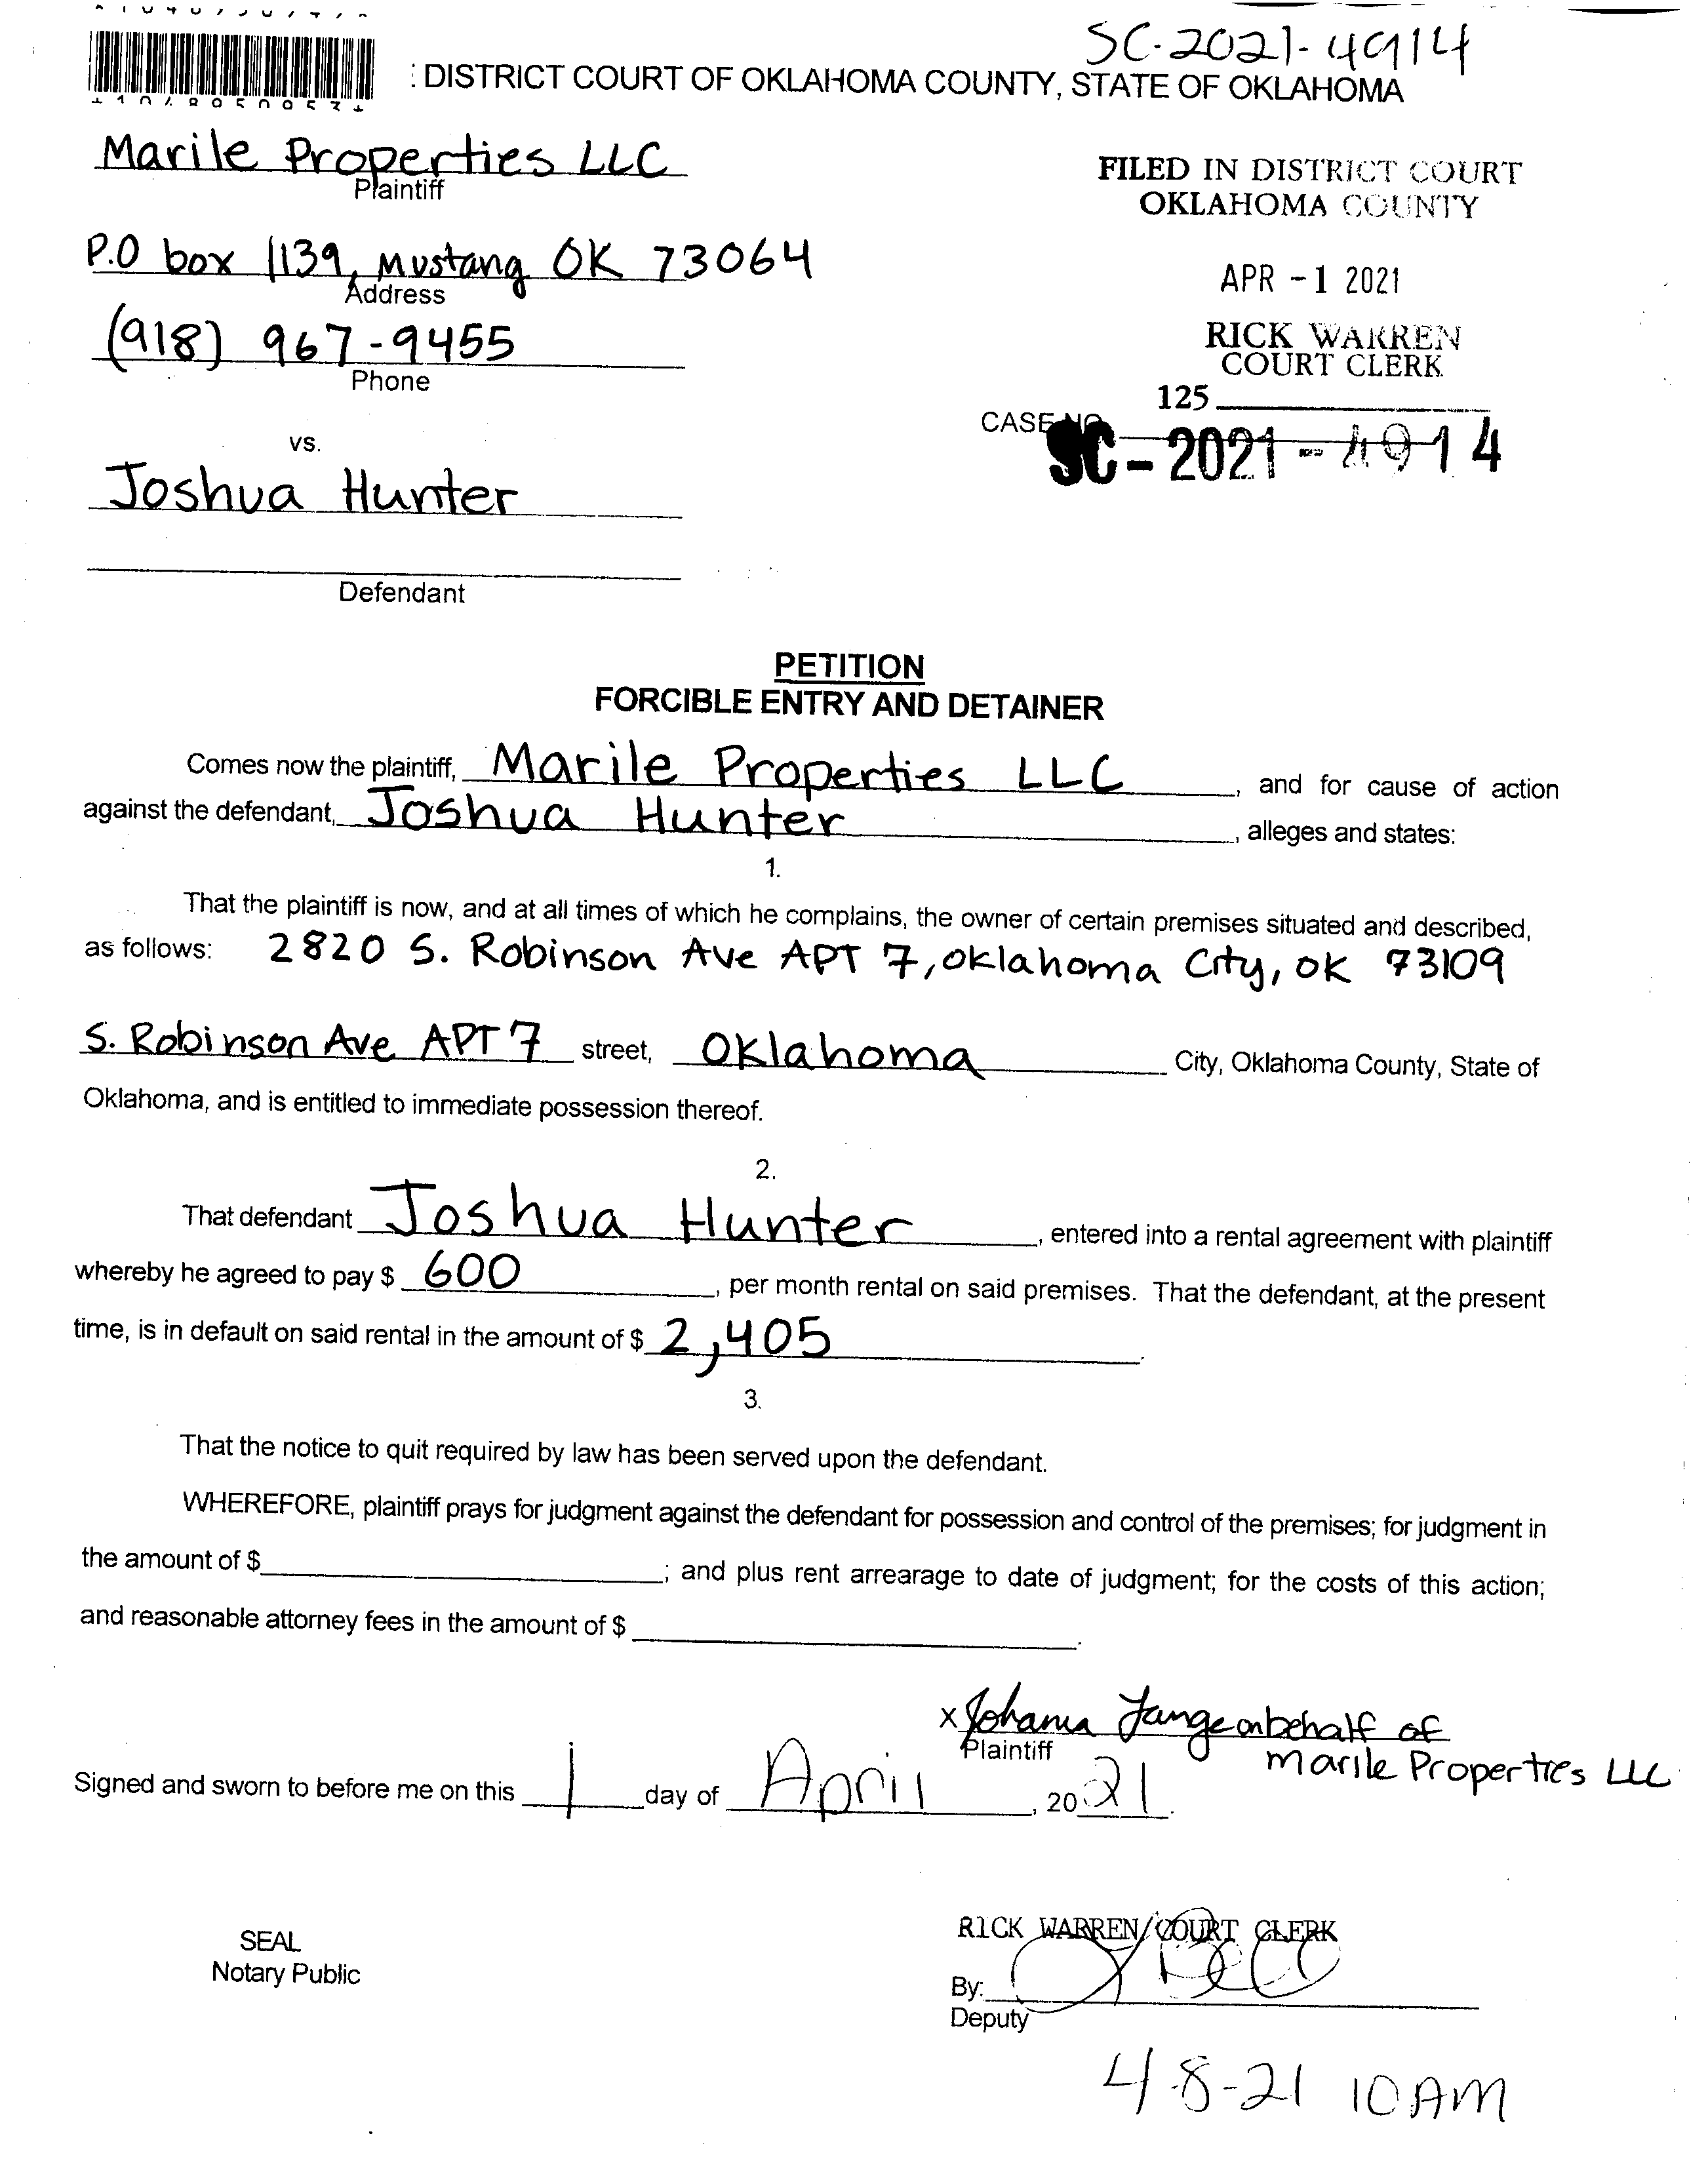 SC-2021-4914
: DISTRICT COURT OF OKLAHOMA COUNTY, STATE OF OKLAHOMA
Marile Properties LLC
Plaintiff
FILED IN DISTRICT COURT
OKLAHOMA COUNTY
P.O box 1139, Mustang OK 73064
Address
APR -1 2021
(918) 967-9455
Phone
RICK WARREN
COURT CLERK
125
CASE NO.
SC-2021-4914
vs.
Joshua Hunter
Defendant
PETITION
FORCIBLE ENTRY AND DETAINER
Comes now the plaintiff, Marile Properties LLC, and for cause of action
against the defendant, Joshua Hunter, alleges and states:
1.
That the plaintiff is now, and at all times of which he complains, the owner of certain premises situated and described,
as follows: 2820 S. Robinson Ave APT 7, Oklahoma City, OK 73109
S. Robinson Ave APT 7 street, Oklahoma City, Oklahoma County, State of
Oklahoma, and is entitled to immediate possession thereof.
2.
That defendant Joshua Hunter, entered into a rental agreement with plaintiff
whereby he agreed to pay $ 600, per month rental on said premises. That the defendant, at the present
time, is in default on said rental in the amount of $ 2,405.
3.
That the notice to quit required by law has been served upon the defendant.
WHEREFORE, plaintiff prays for judgment against the defendant for possession and control of the premises; for judgment in
the amount of $ ; and plus rent arrearage to date of judgment; for the costs of this action;
and reasonable attorney fees in the amount of $ .
x on behalf of
Plaintiff
Marile Properties LLC
Signed and sworn to before me on this 1 day of April, 2021.
SEAL
Notary Public
RICK WARREN/COURT CLERK
By:
Deputy
4-8-21 10 AM